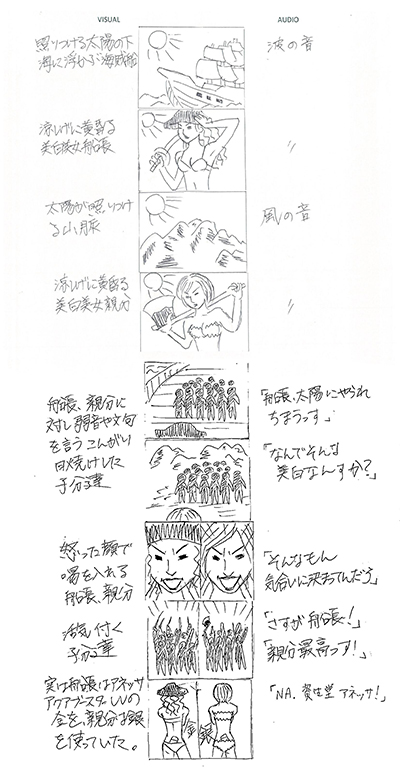 VISUAL
AUDIO
照りつける太陽の下
海に浮かぶ海賊船
波の音
涼しげに黄昏る
美白美女船長
〃
太陽が照りつけ
る山脈
風の音
涼しげに黄昏る
美白美女親分
〃
船長、親分に
対し弱音や文句
を言うこんがり
日焼けした
子分達
「船長、太陽にやられ
ちまうっす」
「なんでそんな
美白なんすか?」
怒った顔で
喝を入れる
船長、親分
「そんなもん
気合いに決まってんだろ」
活気付く
子分達
「さすが船長!」
「親分最高っす!」
実は船長はアネッサ
アクアブースターUVの
金を、親分は銀
を使っていた。
金
銀
「NA. 資生堂 アネッサ!」